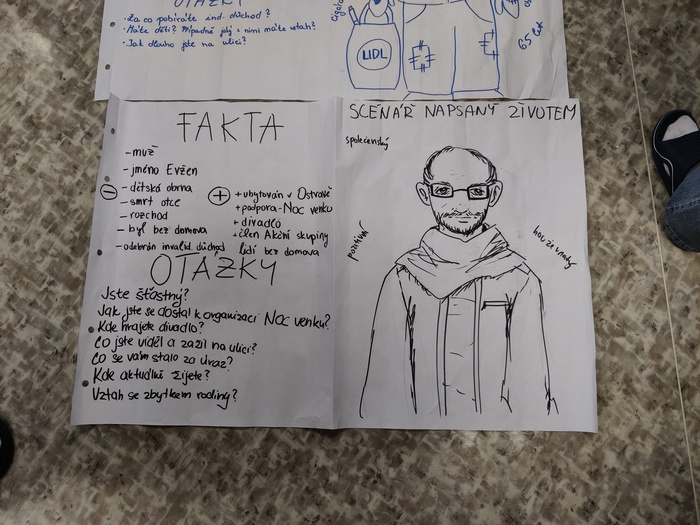 OTÁZKY
· Za co pobíráte ind. důchod?
· Máte děti? Případně jak s nimi máte vztah?
· Jak dlouho jste na ulici?
LIDL
65 let
FAKTA
- muž
- jméno Evžen
- dětská obrna
- smrt otce
- rozchod
- byl bez domova
- odebrán invalid. důchod
+ ubytován v Ostravě
+ podpora - Noc venku
+ divadlo
+ člen Akční skupiny
lidí bez domova
OTÁZKY
Jste šťastný?
Jak jste se dostal k organizaci Noc venku?
Kde hrajete divadlo?
Co jste viděl a zažil na ulici?
Co se vám stalo za úraz?
Kde aktuálně žijete?
Vztah se zbytkem rodiny?
SCÉNÁŘ NAPSANÝ ŽIVOTEM
společenský
pozitivní
houževnatý